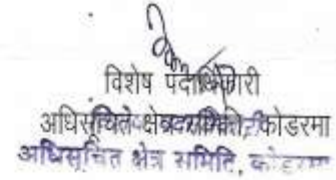 विशेष पदाधिकारी
अधिसूचित क्षेत्र समिति, कोडरमा
अधिसूचित क्षेत्र समिति, कोडरमा